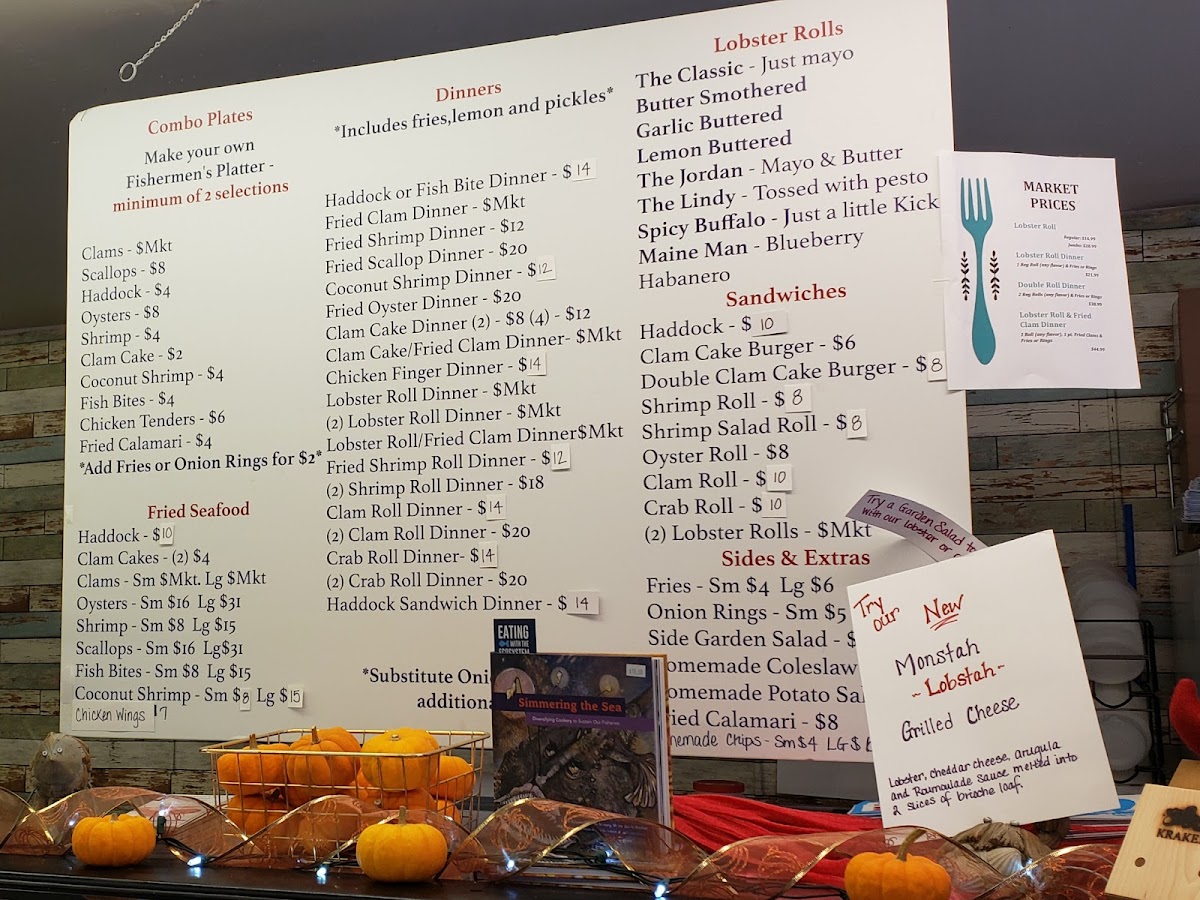 Combo Plates
Make your own
Fishermen's Platter -
minimum of 2 selections
Clams - $Mkt
Scallops - $8
Haddock - $4
Oysters - $8
Shrimp - $4
Clam Cake - $2
Coconut Shrimp - $4
Fish Bites - $4
Chicken Tenders - $6
Fried Calamari - $4
*Add Fries or Onion Rings for $2*
Fried Seafood
Haddock - $10
Clam Cakes - (2) $4
Clams - Sm $Mkt. Lg $Mkt
Oysters - Sm $16 Lg $31
Shrimp - Sm $8 Lg $15
Scallops - Sm $16 Lg$31
Fish Bites - Sm $8 Lg $15
Coconut Shrimp - Sm $8 Lg $15
Chicken Wings 17
Dinners
*Includes fries,lemon and pickles*
Haddock or Fish Bite Dinner - $14
Fried Clam Dinner - $Mkt
Fried Shrimp Dinner - $12
Fried Scallop Dinner - $20
Coconut Shrimp Dinner - $12
Fried Oyster Dinner - $20
Clam Cake Dinner (2) - $8 (4) - $12
Clam Cake/Fried Clam Dinner- $Mkt
Chicken Finger Dinner - $14
Lobster Roll Dinner - $Mkt
(2) Lobster Roll Dinner - $Mkt
Lobster Roll/Fried Clam Dinner$Mkt
Fried Shrimp Roll Dinner - $12
(2) Shrimp Roll Dinner - $18
Clam Roll Dinner - $14
(2) Clam Roll Dinner - $20
Crab Roll Dinner- $14
(2) Crab Roll Dinner - $20
Haddock Sandwich Dinner - $ 14
*Substitute Oni
additiona
Lobster Rolls
The Classic - Just mayo
Butter Smothered
Garlic Buttered
Lemon Buttered
The Jordan - Mayo & Butter
The Lindy - Tossed with pesto
Spicy Buffalo - Just a little Kick
Maine Man - Blueberry
Habanero
Sandwiches
Haddock - $ 10
Clam Cake Burger - $6
Double Clam Cake Burger - $8
Shrimp Roll - $ 8
Shrimp Salad Roll - $8
Oyster Roll - $8
Clam Roll - $ 10
Crab Roll - $ 10
(2) Lobster Rolls - $Mkt
Sides & Extras
Fries - Sm $4 Lg $6
Onion Rings - Sm $5
Side Garden Salad - $
omemade Coleslaw
omemade Potato Sa
ied Calamari - $8
memade Chips - Sm $4 LG $
MARKET
PRICES
Lobster Roll
Regular: $14.99
Jumbo: $28.99
Lobster Roll Dinner
1 Reg Roll (any flavor) & Fries or Rings
$21.99
Double Roll Dinner
2 Reg Rolls (any flavor) & Fries or Rings
$38.99
Lobster Roll & Fried
Clam Dinner
1 Roll (any flavor), 1 pt. Fried Clams &
Fries or Rings
$44.99
Try a Garden Salad to
with our lobster or
Try
our New
Monstah
~Lobstah~
Grilled Cheese
Lobster, cheddar cheese, arugula
and Roumoulade sauce melted into
2 slices of brioche loaf.
EATING
WITH THE
ECOSYSTEM
Simmering the Sea
Diversifying Cookery to Sustain Our Fisheries
KRAKE